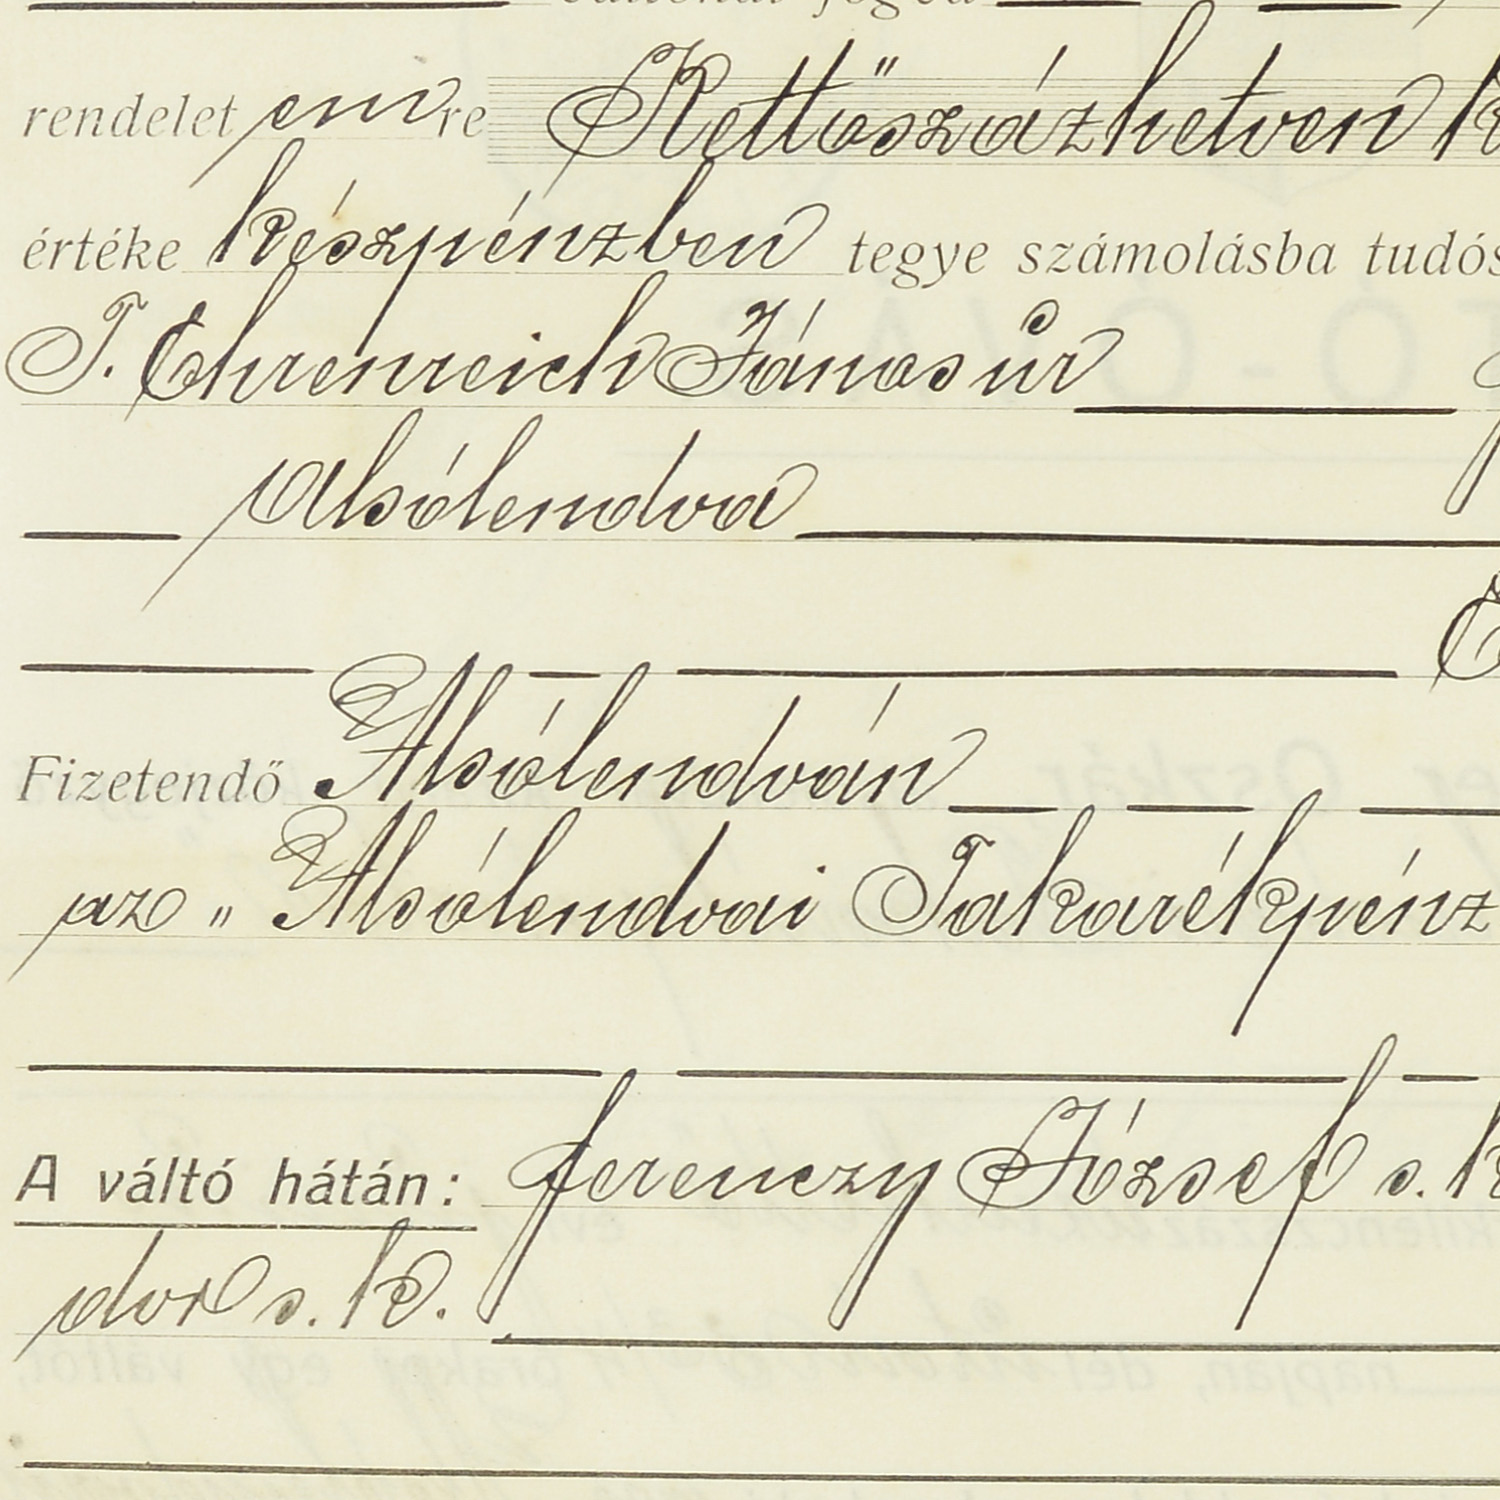 rendelet emre Kettőszázhetven
értéke készpénzben tegye számolásba
T. Ehrenreich János úr
Alsólendva
Fizetendő Alsólendván
az „Alsólendvai Takarékpénz
A váltó hátán: Ferenczy József s. k
dor s. k.